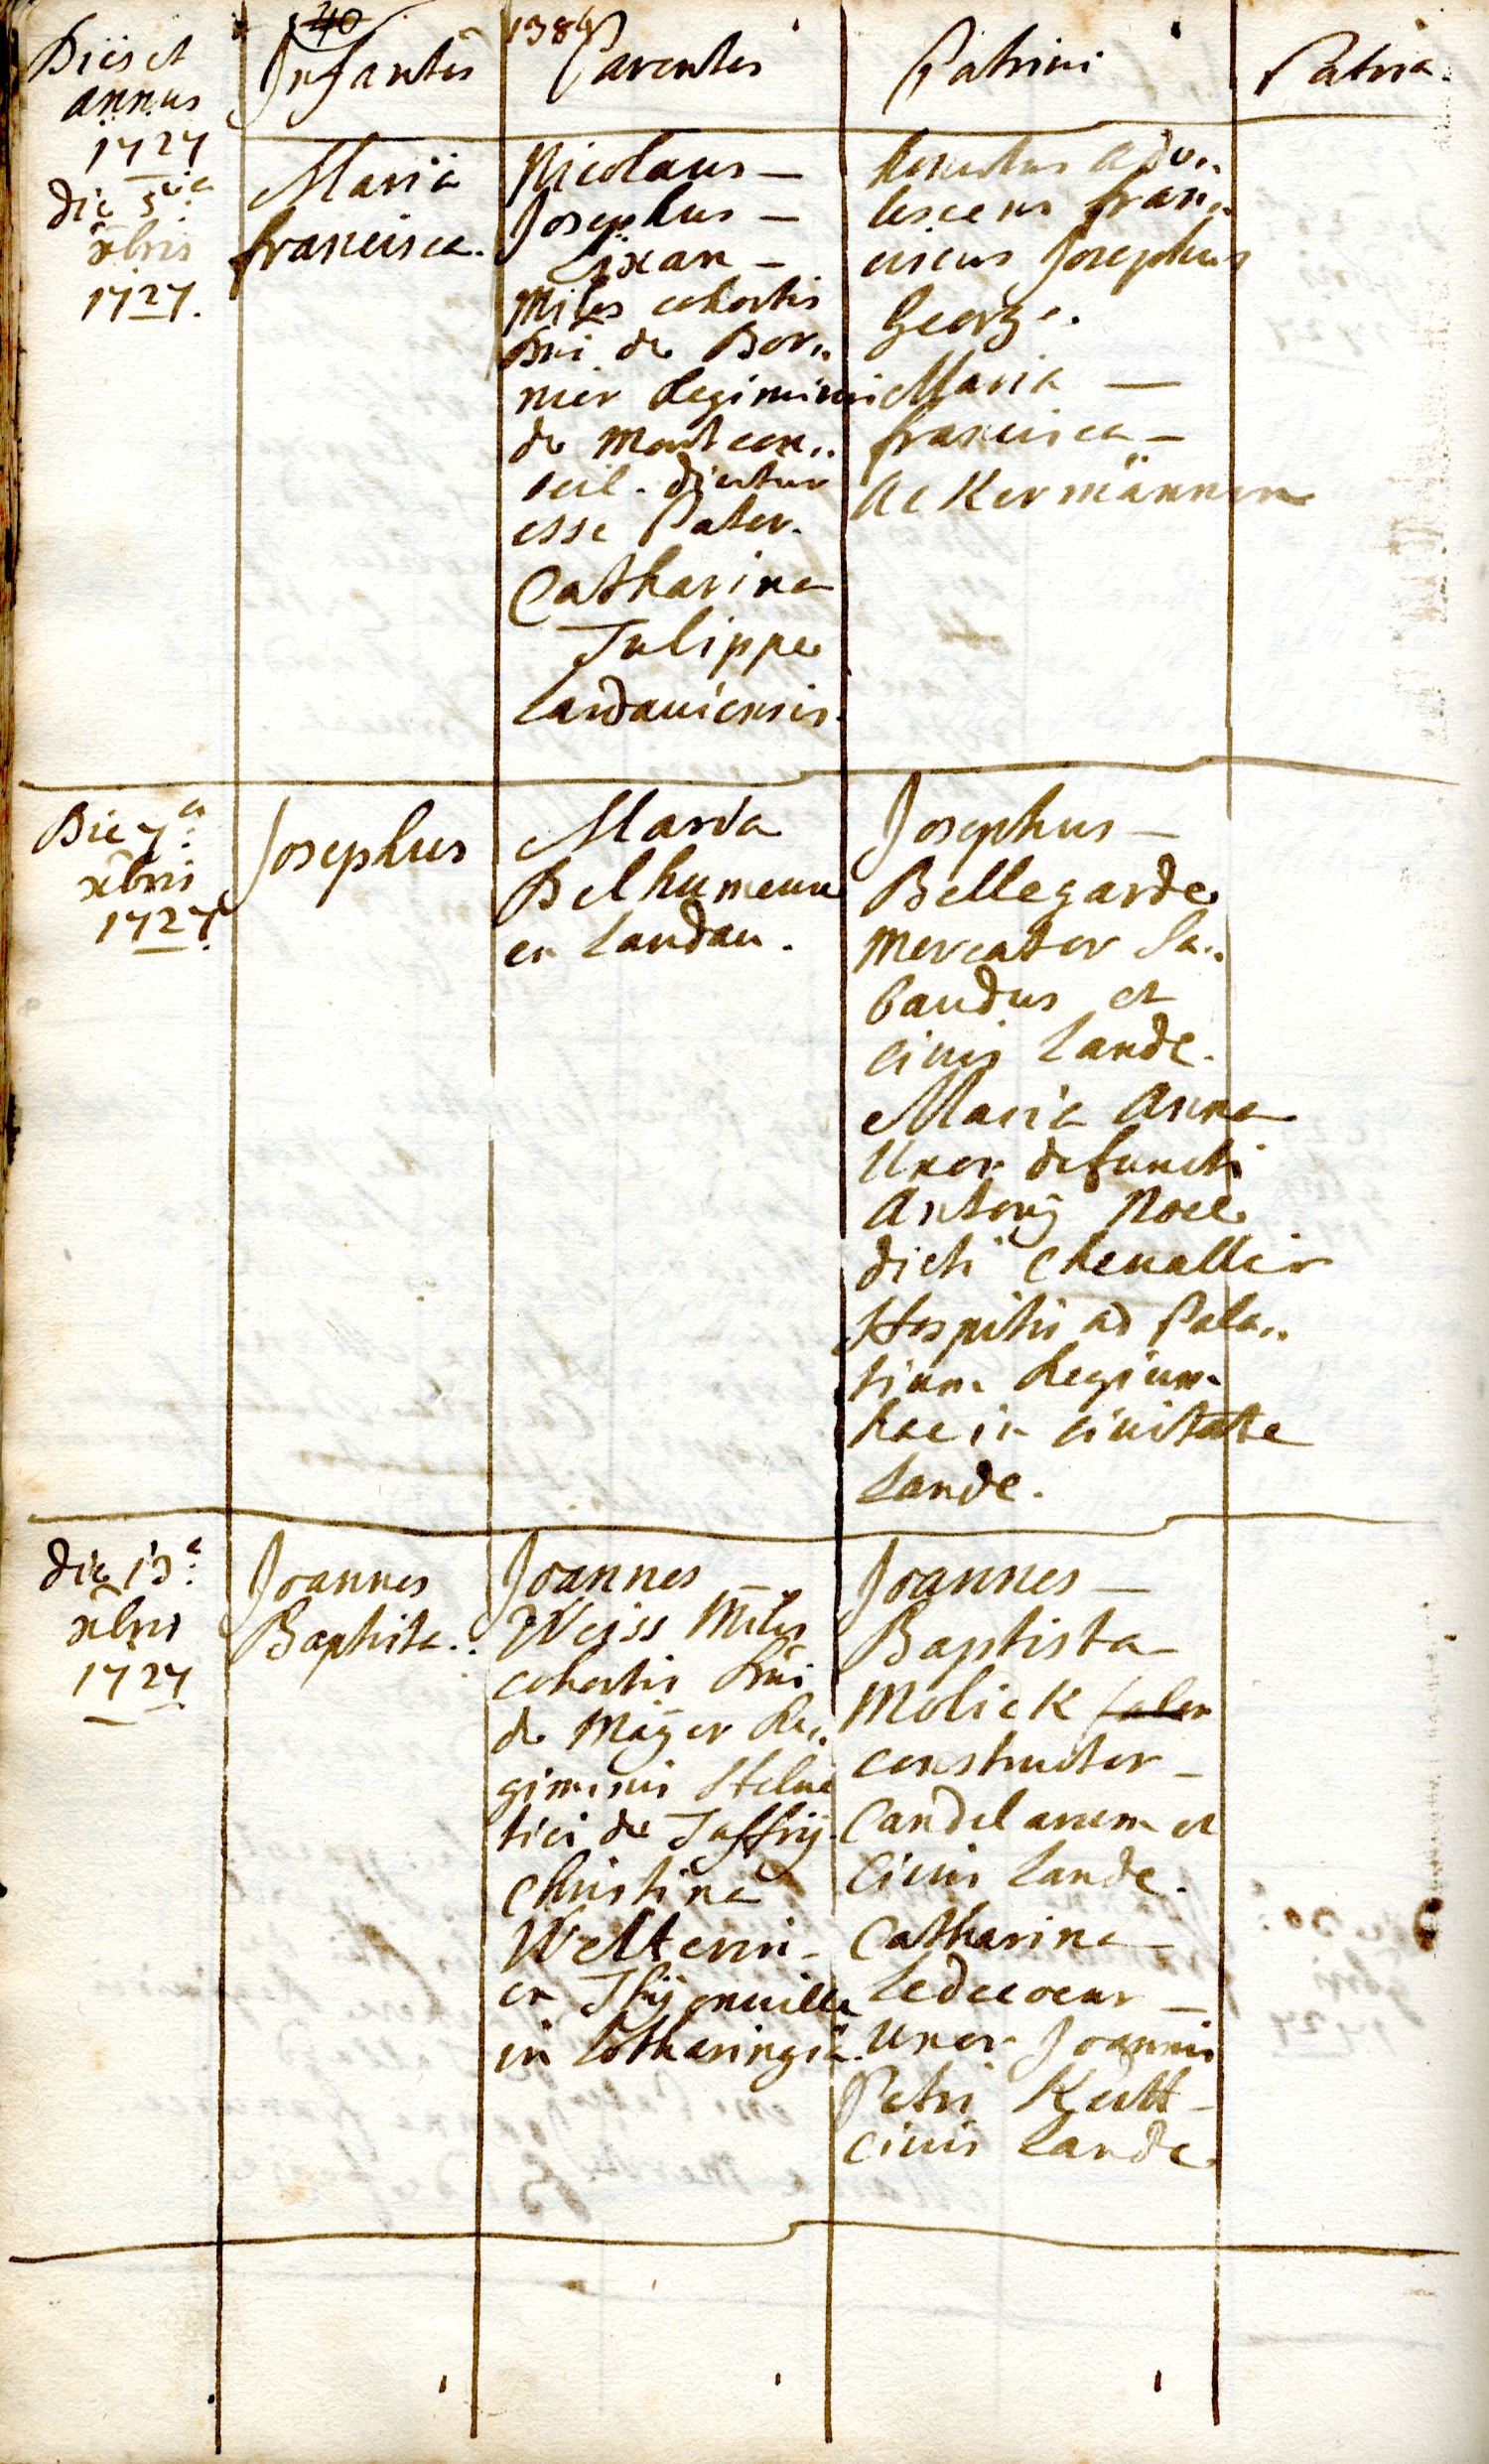 40
1384
Dies et
annus
1727
Infantes
Parentes
Patrini
Patria
die 5ta
xbris
1727.
Maria
francisca.
Nicolaus —
Josephus —
Lixan —
Miles cohortis
Dni de Bor„
nier Regiminis
de Montcon„
seil. dicitur
esse Pater.
Catharina
Tulippe
Landaviensis.
honestus ado„
lescens fran„
ciscus Josephus
George.
Maria —
francisca —
Ackermännin
Die 7a
xbris
1727
Josephus
Maria
Belhumeur
ex Landau.
Josephus —
Bellegarde
Mercator Sa„
baudus et
civis Lande.
Maria Anna
Uxor defuncti
Antonÿ Noel
dicti Chevallier
Hospitis ad Pala„
tium Regium
hac in civitate
Lande.
die 13a
xbris
1727
Joannes
Baptista.
Joannes —
Weiss Miles
cohortis Dni
de Maÿer Re„
giminis Helve
tici de Taffrÿ.
Christina
Welterin —
ex Thÿonville
in Lotharingia.
Joannes —
Baptista
Molick
constructor —
Candelarum et
Civis Lande.
Catharina —
Ledecoeur —
Uxor Joannis
Petri Kutt —
civis Lande.